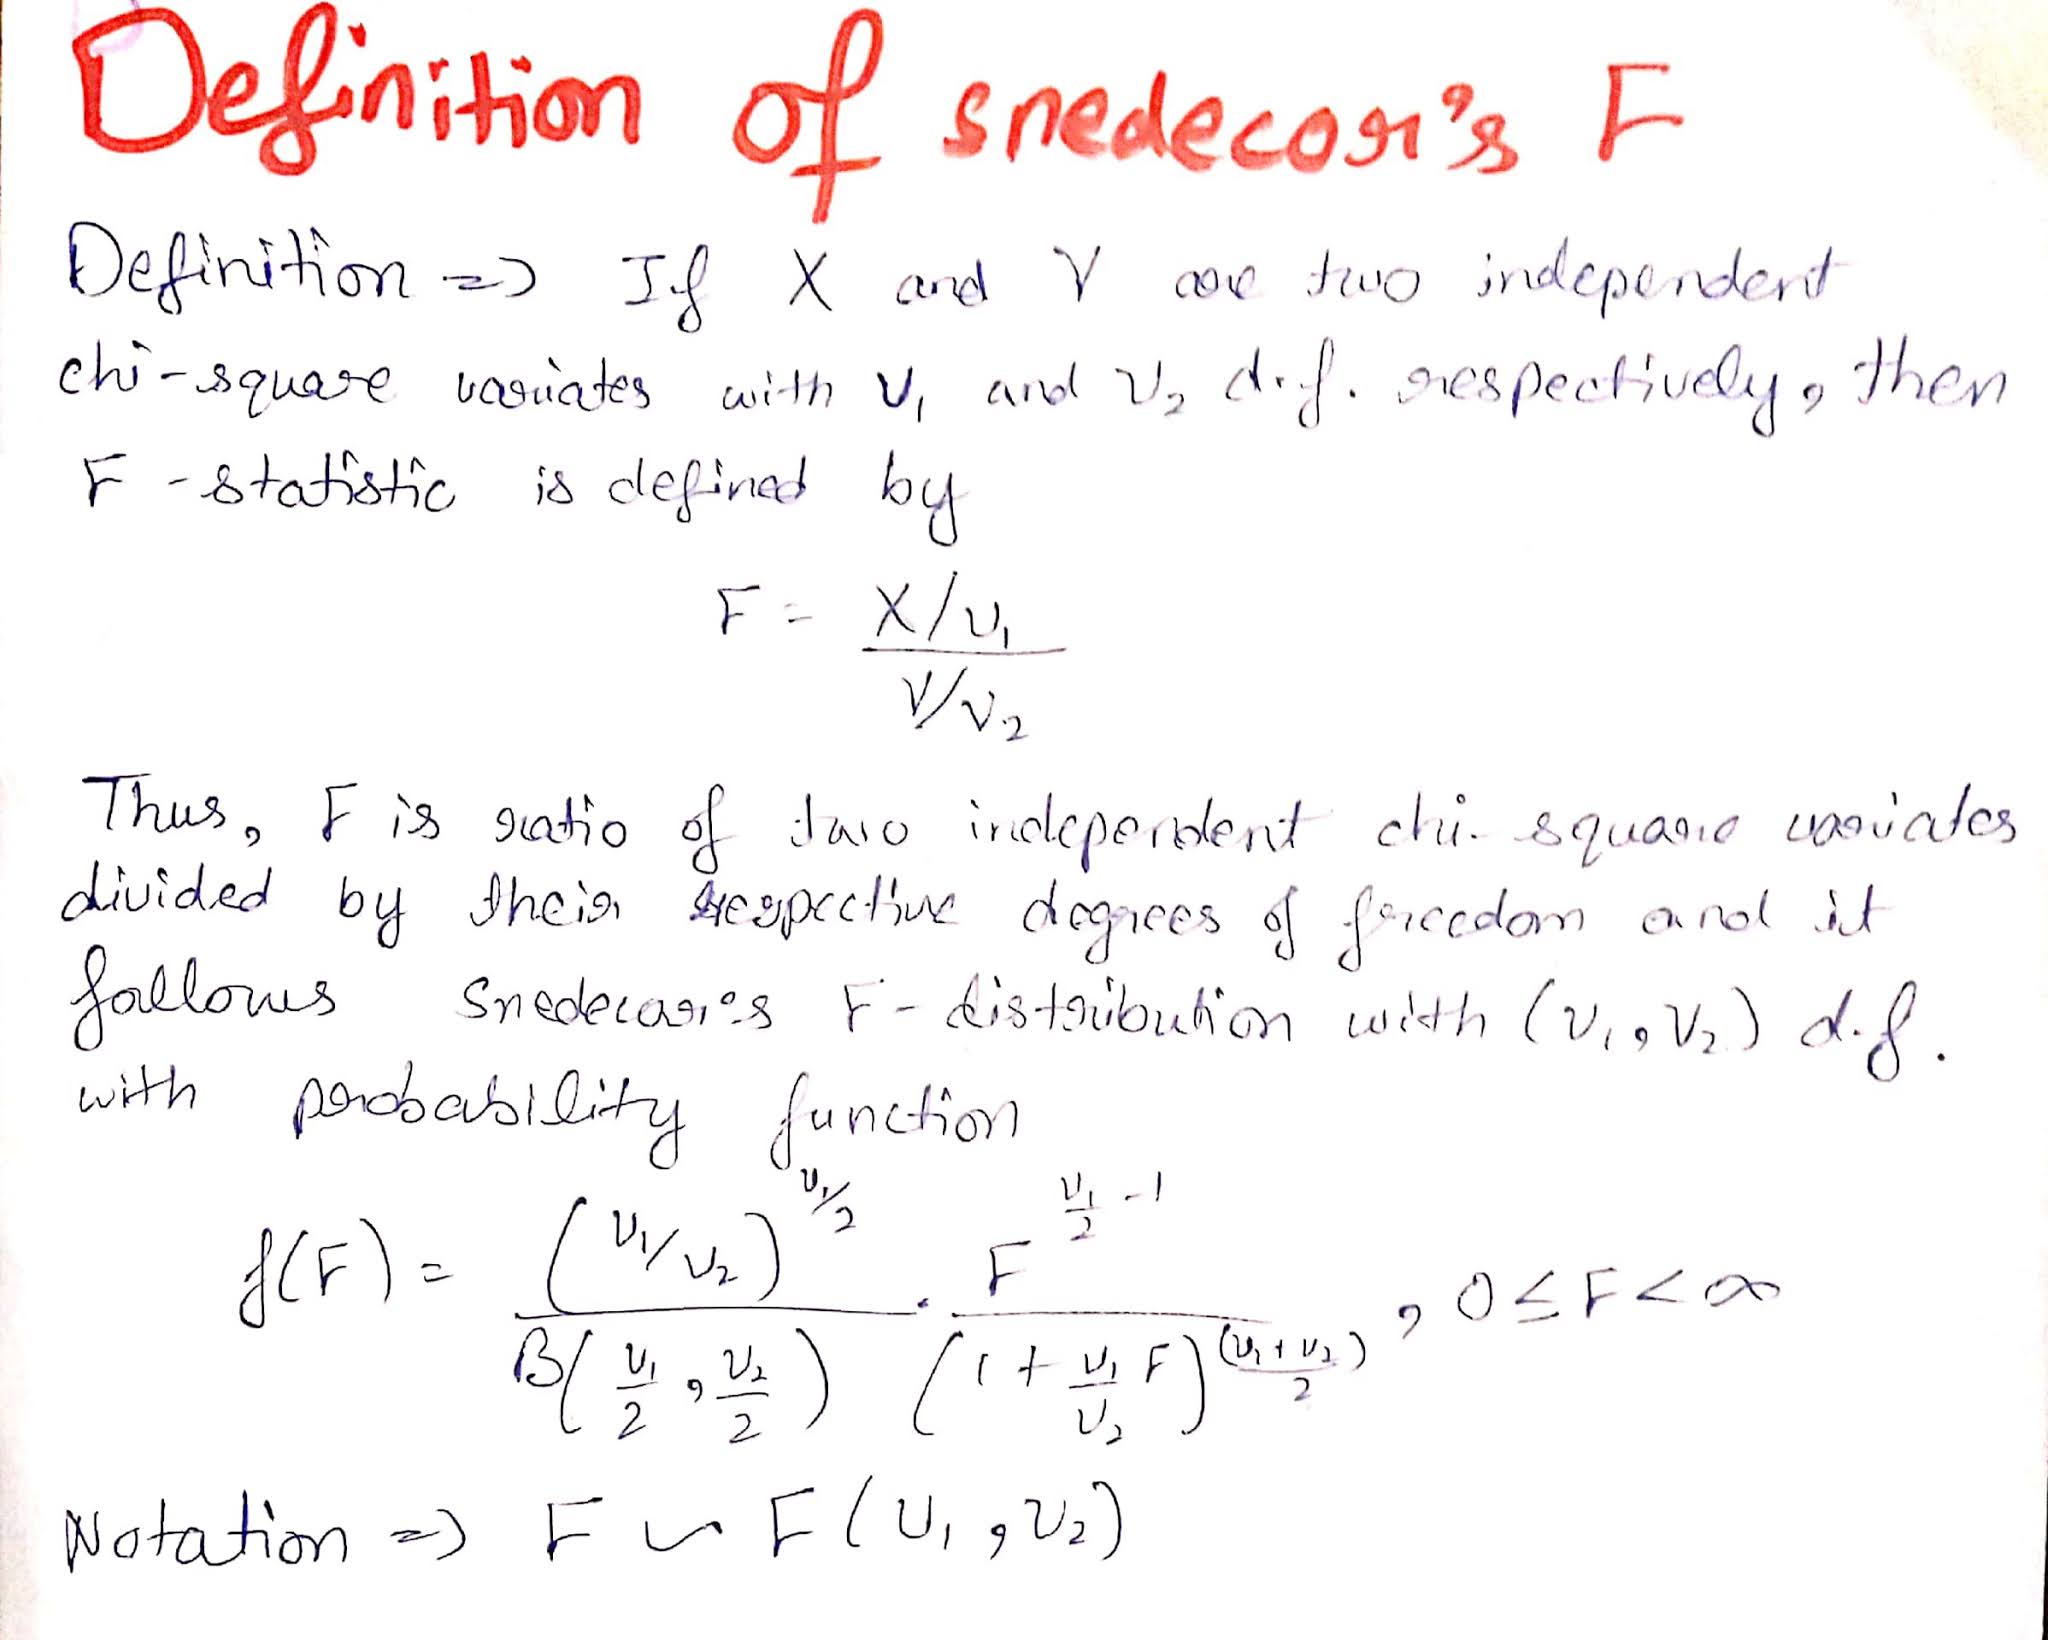 Definition of snedecor's F
Definition => If X and Y are two independent
chi-square variates with ν₁ and ν₂ d.f. respectively, then
F-statistic is defined by
F = X/ν₁
Y/ν₂
Thus, F is ratio of two independent chi-square variates
divided by their respective degrees of freedom and it
follows Snedecor's F-distribution with (ν₁, ν₂) d.f.
with probability function
f(F) = (ν₁/ν₂)^(ν₁/2) / B(ν₁/2, ν₂/2) . F^(ν₁/2 - 1) / (1 + ν₁/ν₂ F)^((ν₁+ν₂)/2), 0 ≤ F < ∞
Notation => F ~ F(ν₁, ν₂)